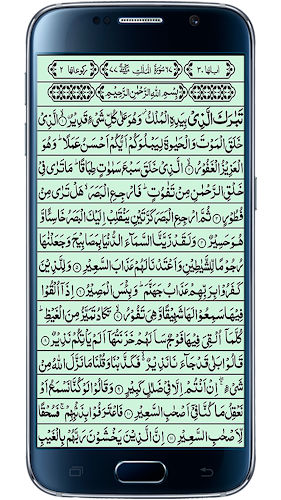 اٰیاتها ۳۰ ۶۷ سُوْرَةُ الْمُلْكِ مَكِّيَّةٌ ۷۷ رکوعاتها ۲
بِسْمِ اللّٰهِ الرَّحْمٰنِ الرَّحِيْمِ
تَبٰرَكَ الَّذِيْ بِيَدِهِ الْمُلْكُ وَهُوَ عَلٰى كُلِّ شَيْءٍ قَدِيْرٌ الَّذِيْ
خَلَقَ الْمَوْتَ وَالْحَيٰوةَ لِيَبْلُوَكُمْ اَيُّكُمْ اَحْسَنُ عَمَلًا وَهُوَ
الْعَزِيْزُ الْغَفُوْرُ الَّذِيْ خَلَقَ سَبْعَ سَمٰوٰتٍ طِبَاقًا مَا تَرٰى فِيْ
خَلْقِ الرَّحْمٰنِ مِنْ تَفٰوُتٍ فَارْجِعِ الْبَصَرَ هَلْ تَرٰى مِنْ
فُطُوْرٍ ثُمَّ ارْجِعِ الْبَصَرَ كَرَّتَيْنِ يَنْقَلِبْ اِلَيْكَ الْبَصَرُ خَاسِئًا وَّ
هُوَ حَسِيْرٌ وَلَقَدْ زَيَّنَّا السَّمَآءَ الدُّنْيَا بِمَصَابِيْحَ وَجَعَلْنٰهَا
رُجُوْمًا لِّلشَّيٰطِيْنِ وَاَعْتَدْنَا لَهُمْ عَذَابَ السَّعِيْرِ وَلِلَّذِيْنَ
كَفَرُوْا بِرَبِّهِمْ عَذَابُ جَهَنَّمَ وَبِئْسَ الْمَصِيْرُ اِذَآ اُلْقُوْا
فِيْهَا سَمِعُوْا لَهَا شَهِيْقًا وَّهِيَ تَفُوْرُ تَكَادُ تَمَيَّزُ مِنَ الْغَيْظِ
كُلَّمَآ اُلْقِيَ فِيْهَا فَوْجٌ سَاَلَهُمْ خَزَنَتُهَآ اَلَمْ يَاْتِكُمْ نَذِيْرٌ
قَالُوْا بَلٰى قَدْ جَآءَنَا نَذِيْرٌ فَكَذَّبْنَا وَقُلْنَا مَا نَزَّلَ اللّٰهُ مِنْ
شَيْءٍ اِنْ اَنْتُمْ اِلَّا فِيْ ضَلٰلٍ كَبِيْرٍ وَقَالُوْا لَوْ كُنَّا نَسْمَعُ اَوْ
نَعْقِلُ مَا كُنَّا فِيْٓ اَصْحٰبِ السَّعِيْرِ فَاعْتَرَفُوْا بِذَنْۢبِهِمْ فَسُحْقًا
لِّاَصْحٰبِ السَّعِيْرِ اِنَّ الَّذِيْنَ يَخْشَوْنَ رَبَّهُمْ بِالْغَيْبِ